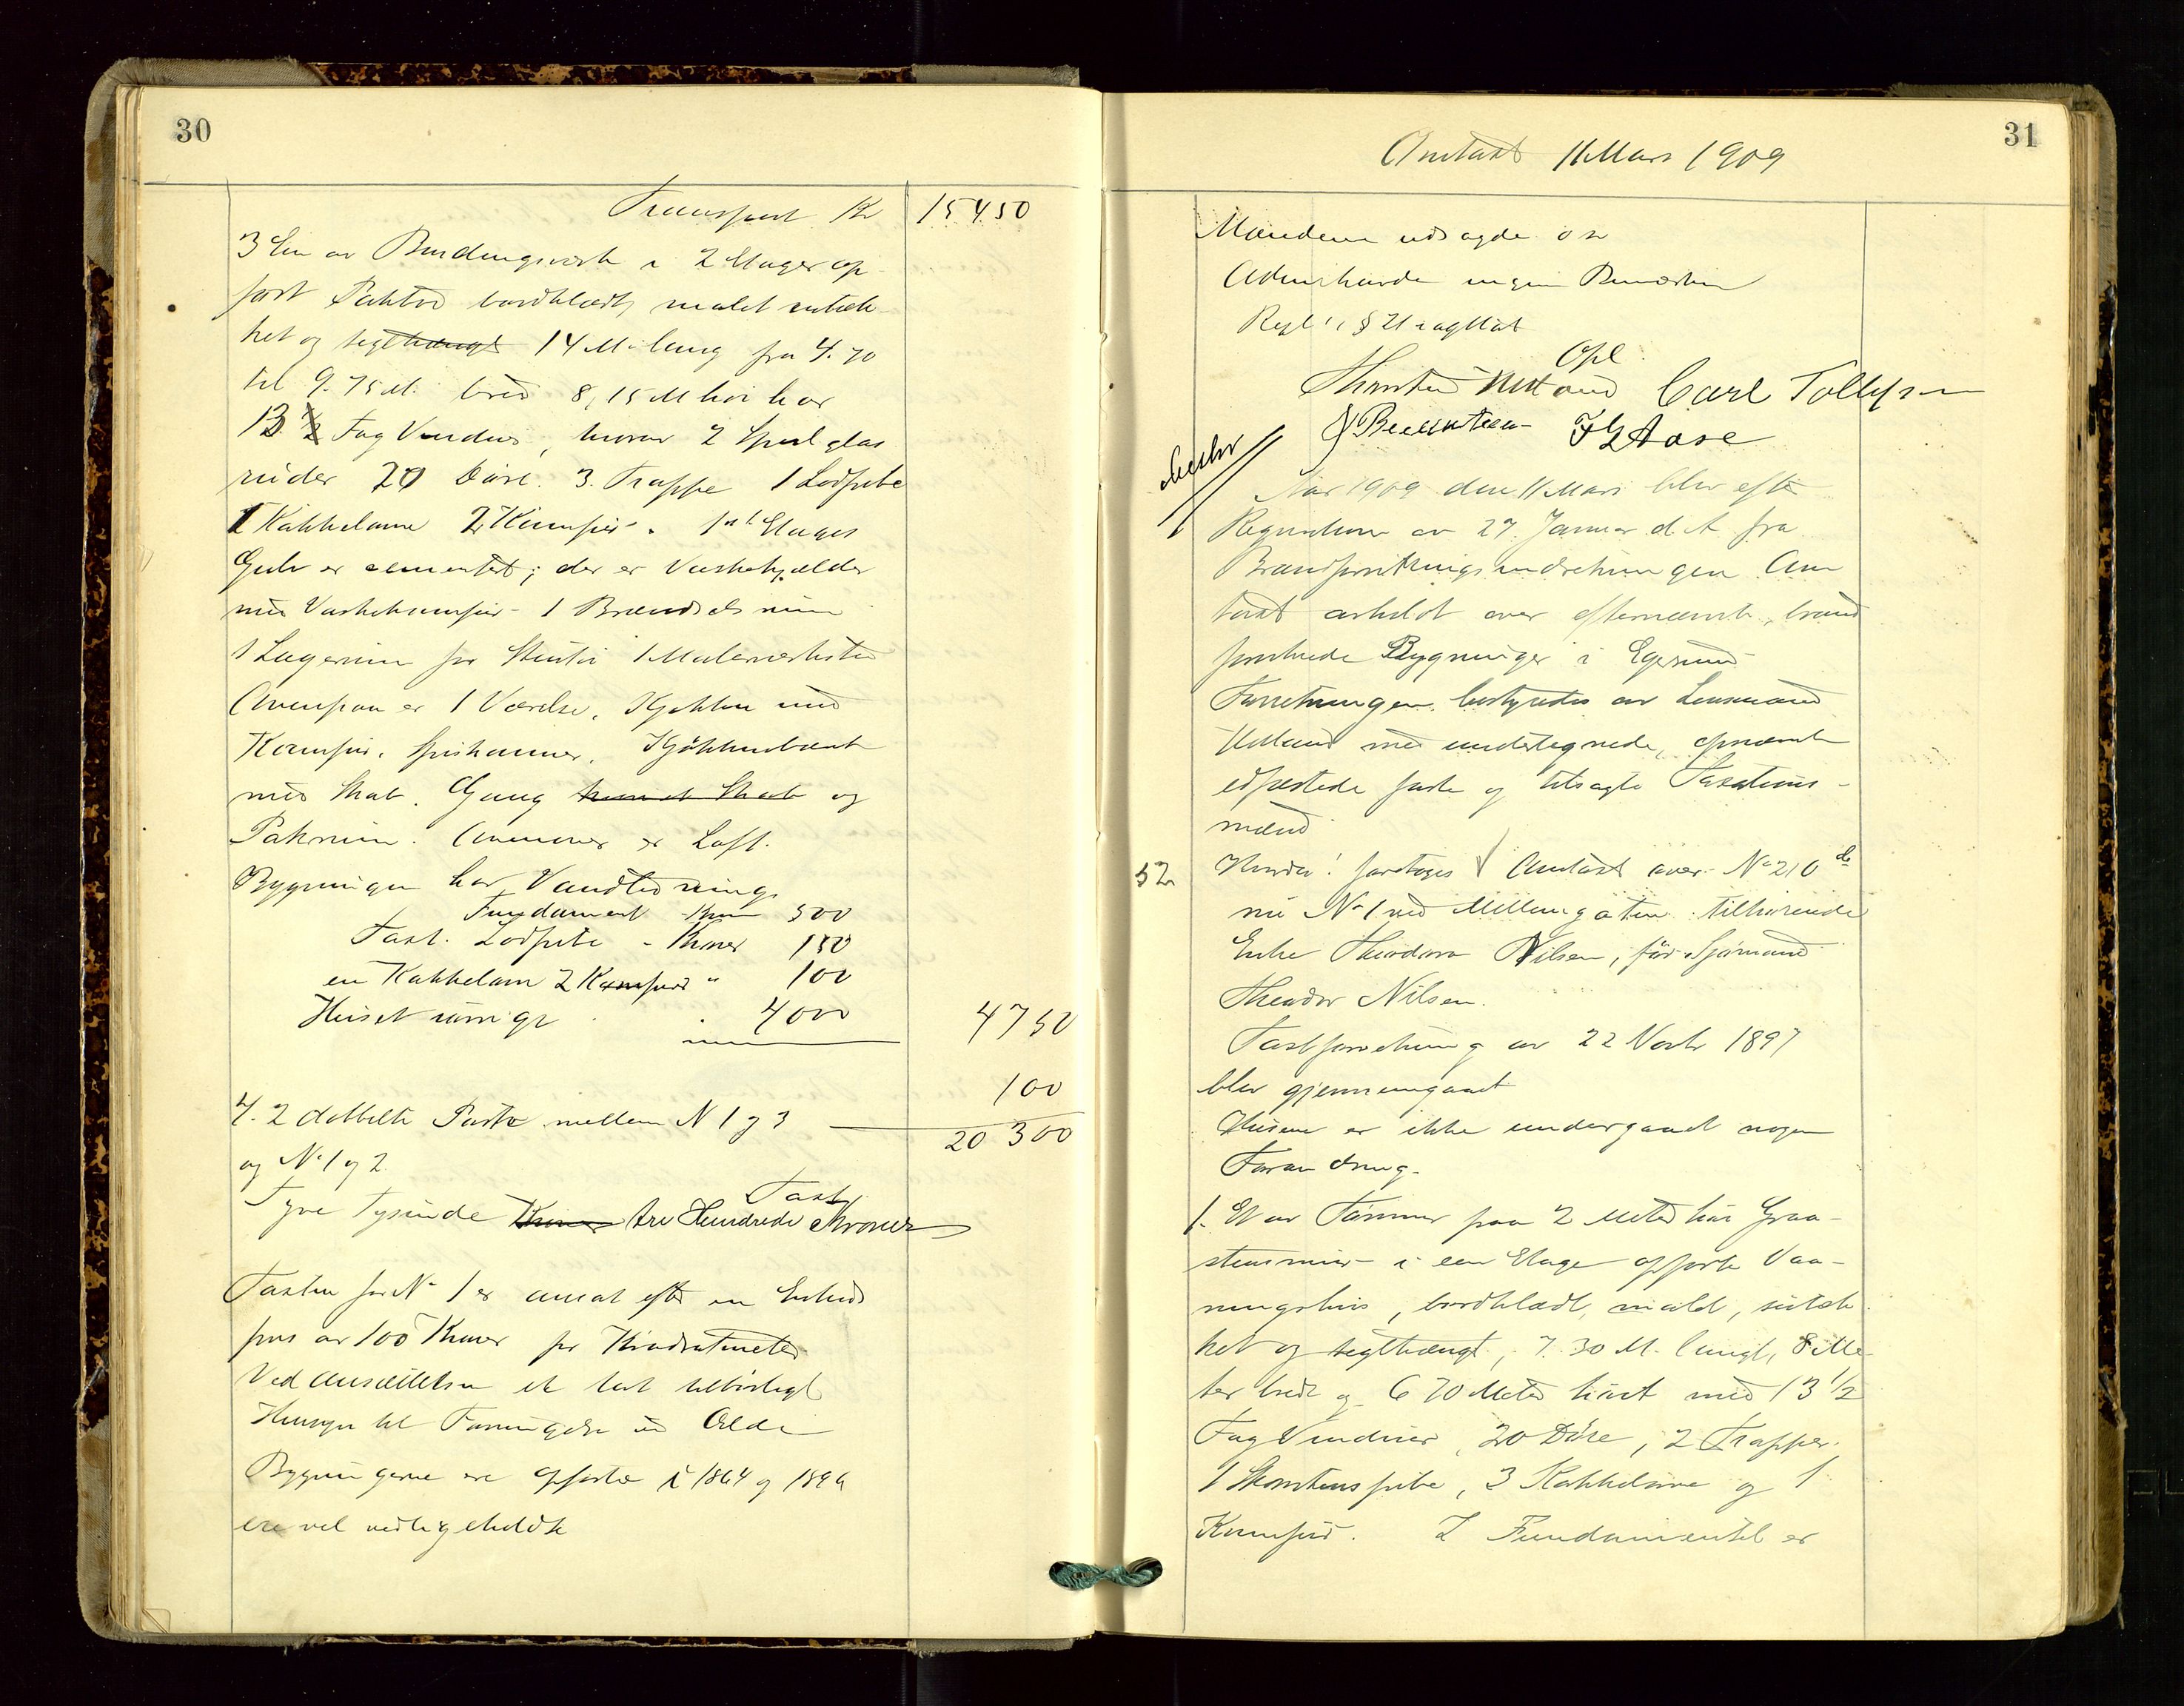 30
Transport Kr 15450
3 En av Bindingsverk i 2 Etager op-
ført bordklædt, malet sutæk-
ket og teglhængt 14 M. lang fra 4.70
til 9.75 M. bred 8,15 M høi har
13 Fag Vinduer, hvorav 2 Speilglas
ruder 20 Døre. 3. Trappe 1 Lodpibe
1 Kakkelovne 2 Komfur. 1st Etages
Gulv er cementert; der er Vaskekjælder
med Vaskekomfur 1 Brændselsrum
1 Lagerrum for 1 Malerverksted
Ovenpaa er 1 Værelse, Kjøkken med
Komfur, Spiskammer, Kjøkkenbænk
med Skab. Gang og
Pakrum. Ovenover er Loft.
Bygningen har Vandledning
Fundament Kroner 500
Taxt. Lodpibe - Kroner 150
en Kakkelovn 2 Komfurer " 100
Huset iøvrigt 4000 4750
100
4. 2 dobbelte Porte mellem N 1 og 3
20 300
og No 1 og 2
Taxt
Tyve Tusinde tre Hundrede Kroner
Taxten for No 1 er ansat efter en Enheds
pris av 100 Kroner pr Kvadratmeter
Ved Ansættelsen er tat tilbørligt
Hensyn til Forringelse ved Ælde
Bygningerne ere opførte i 1864 og 1896
ere vel vedligeholdte
31
Omtaxt 11 Mars 1909
Mændene
Administrator ingen Bemærkn
Regl's § 21 iagttat
Opl
Carl Tollefsen
Aase
Aar 1909 den 11 Mars blev efter
Reqvisition av 27. Januar d. A. fra
Brandforsikringsindretningen Om
taxt avholdt over efternævnte, brand
forsikrede Bygninger i Egersund
Forretningen bestyredes av Lensmand
med undertegnede, opnævnte
edfæstede faste og tilsagte Taxations-
mænd
52 Herunder foretoges Omtaxt over No 210 de
nu No 1 ved Mellemgaten tilhørende
Enke Theodora Nilsen, før Sjømand
Theodor Nilsen.
Taxtforretning av 22 Novbr 1897
blev gjennemgaaet
Husene er ikke undergaaet nogen
Forandring.
1. Et av Tømmer paa 2 Meter høi Graa-
stensmur i een Etage opførte Vaa-
ningshus, bordklædt, malet, sutæk
ket og teglhængt, 7.30 M. langt, 8 Me
ter bredt og 6 70 Meter høit med 13 1/2
Fag Vinduer, 20 Døre, 2 Trapper
1 Skorstenspibe, 3 Kakkelovne og 1
Komfur. I Fundamentet er